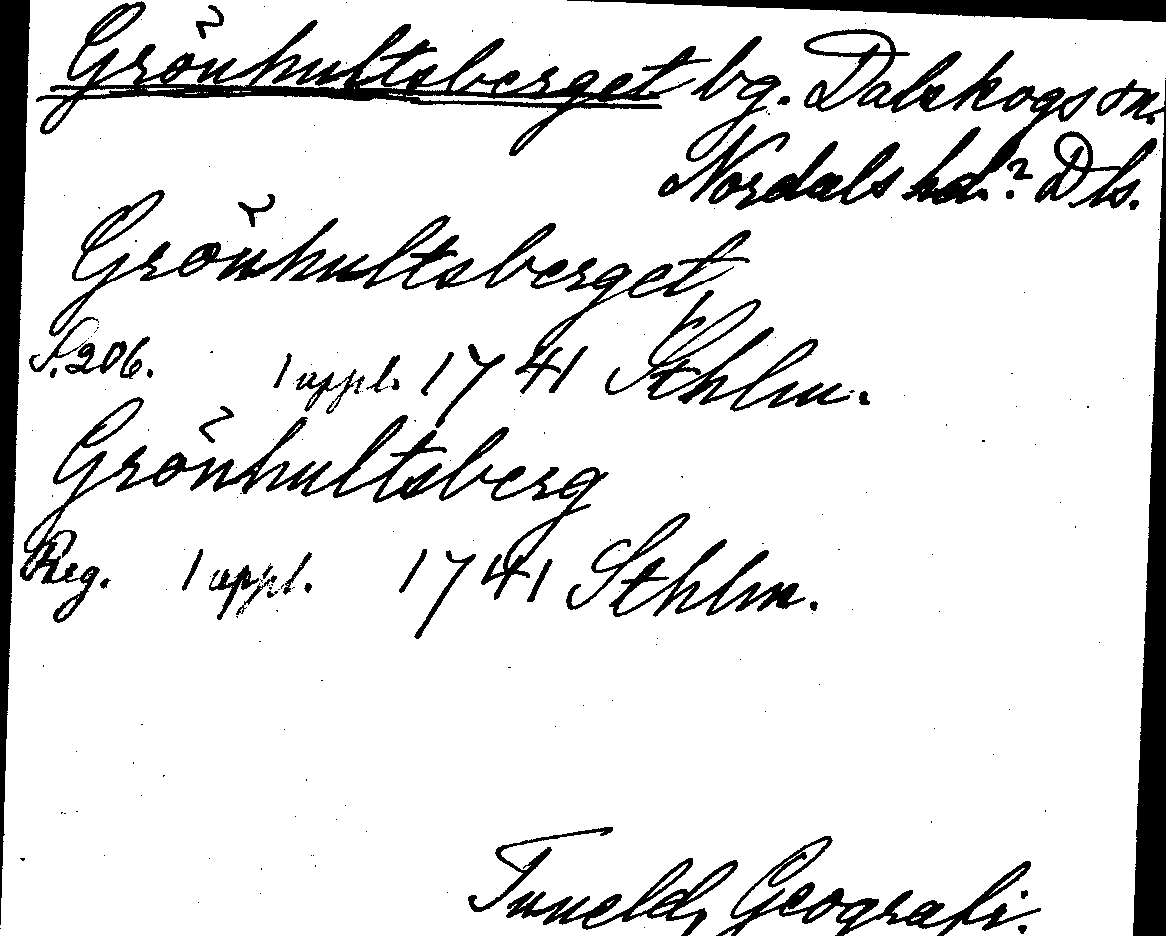 Grönhultsberget bg. Dalskogs sn.
Nordals hd.? Dls.
Grönhultsberget,
S. 206. 1 uppl. 1741 Sthlm.
Grönhultsberg
Reg. 1 uppl. 1741 Sthlm.
Tuneld, Geografi.